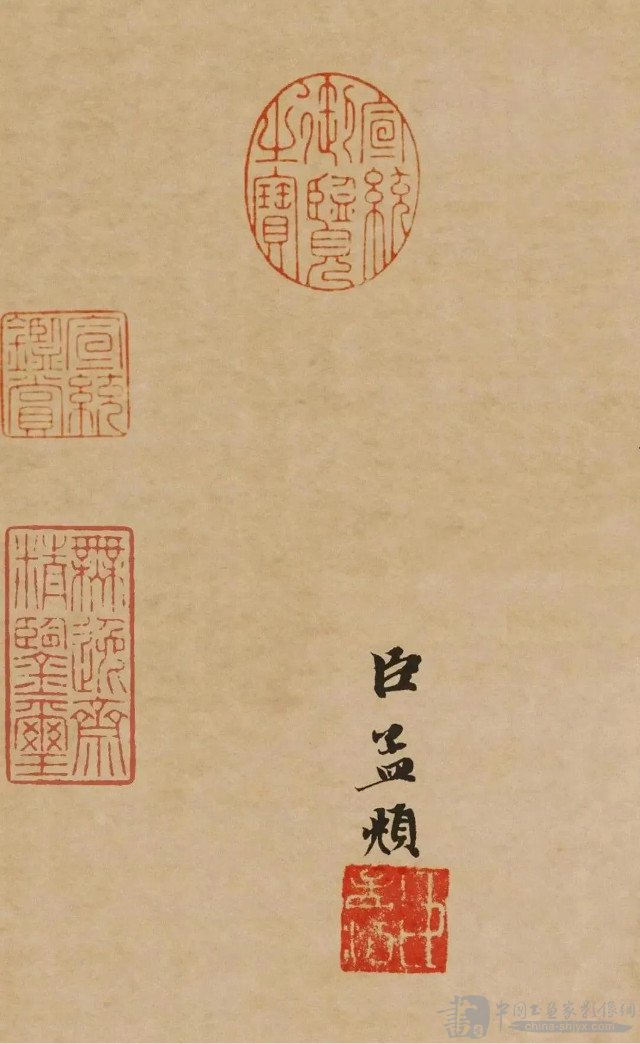 宣統
御覽
之寶
宣統
鑑賞
無逸齋
精鑒璽
臣孟頫
中国书画家影像网
china-shjyx.com